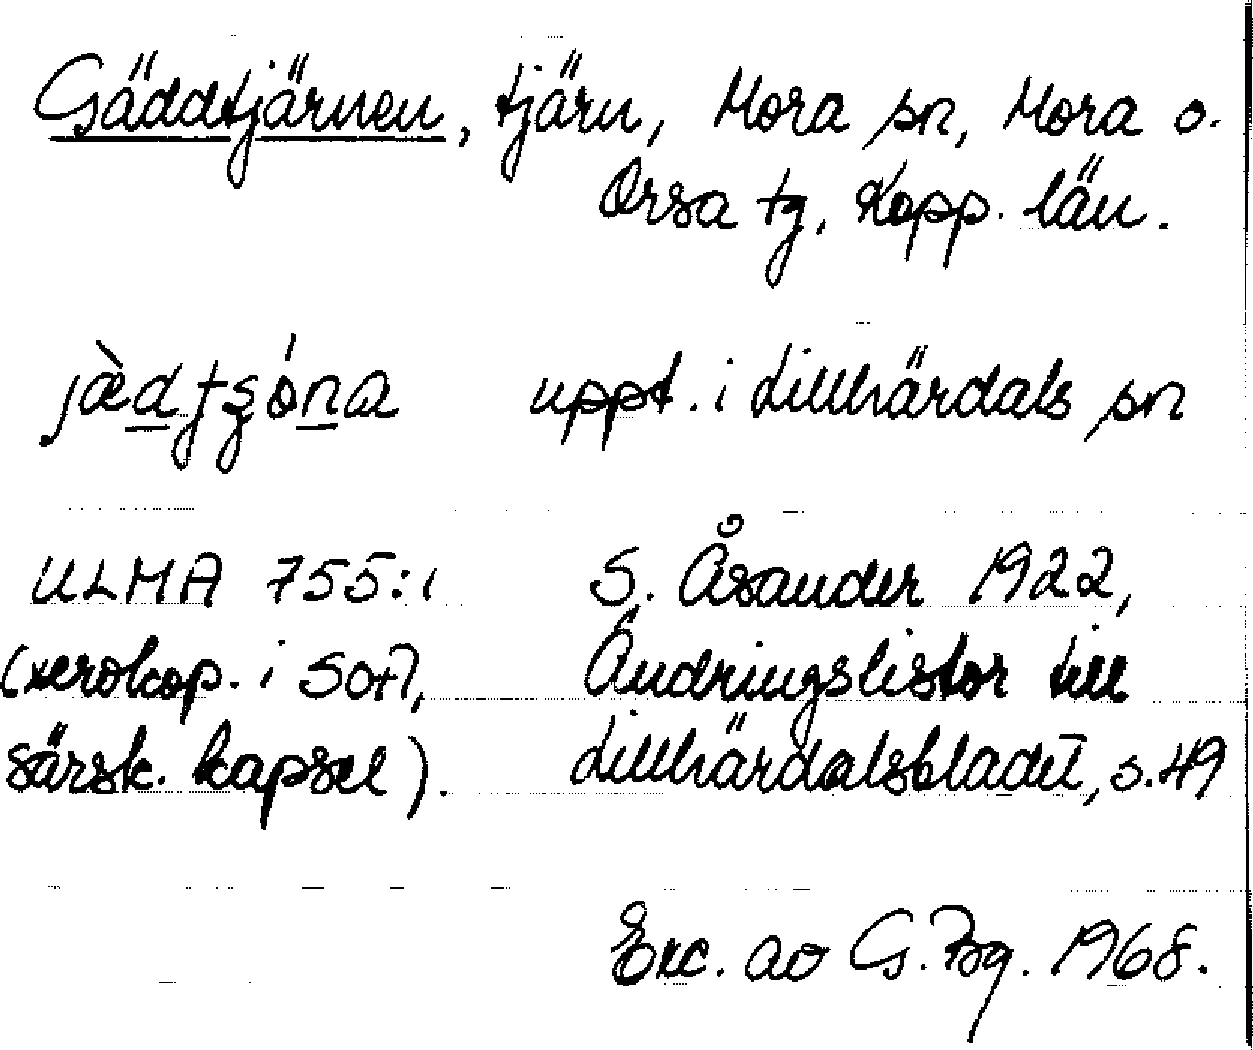 Gäddtjärnen, tjärn, Mora sn, Mora o.
Orsa tg, Kopp. län.
uppt. i Lillhärdals sn
ULMA 755:1 S. Åsander 1922,
(xerokop. i SOA, Ändringslistor till
särsk. kapsel). Lillhärdalsbladet, s. 49
Exc. av G. Bg. 1968.